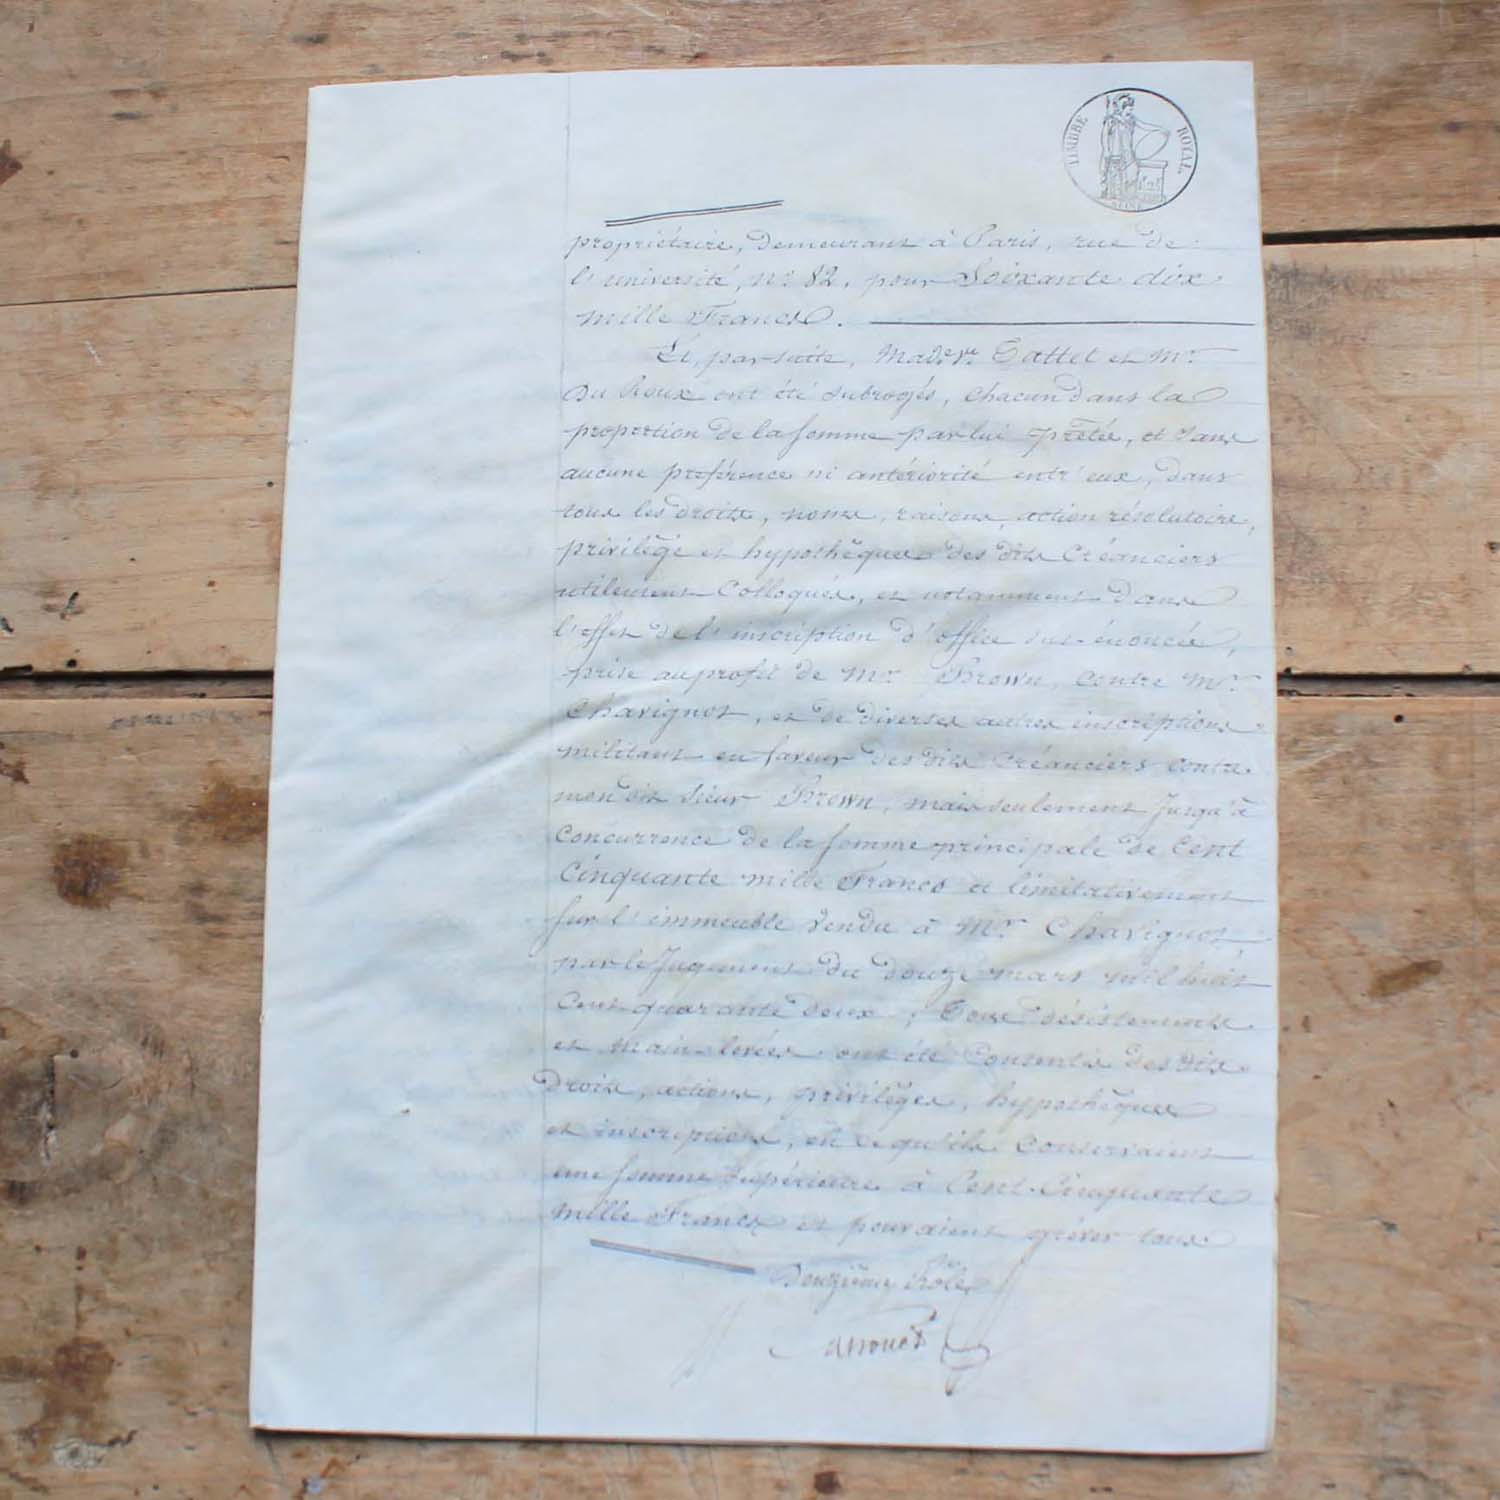 TIMBRE ROYAL
SEINE
propriétaire, demeurant à Paris, rue de
l'université, n° 82, pour Soixante dix
mille Francs.
Et, par suite, Made. Ve. Tattet et Mr.
Du Roux ont été subrogés, chacun dans la
proportion de la somme par lui prêtée, et sans
aucune préférence ni antériorité entr'eux, dans
tous les droits, noms, raisons, action résolutoire,
privilège et hypothèques des dits Créanciers
utilement Colloqués, et notamment dans
l'effet de l'inscription d'office sus-énoncée,
prise au profit de Mr. Brown, contre Mr.
Chavignot, et de diverses autres inscriptions
militant en faveur des dits Créanciers contre
mon dit Sieur Brown, mais seulement jusqu'à
concurrence de la somme principale de Cent
Cinquante mille Francs et limitativement
sur l'immeuble vendu à Mr. Chavignot
par le Jugement du douze mars mil huit
Cent quarante deux ; Tous désistements
et main-levées ont été Consentis des dits
droits, actions, privilèges, hypothèques
et inscriptions, en ce qu'ils Conservaient
une somme supérieure à Cent-Cinquante
Mille Francs et pouvaient gréver tous
Douzième Rôle